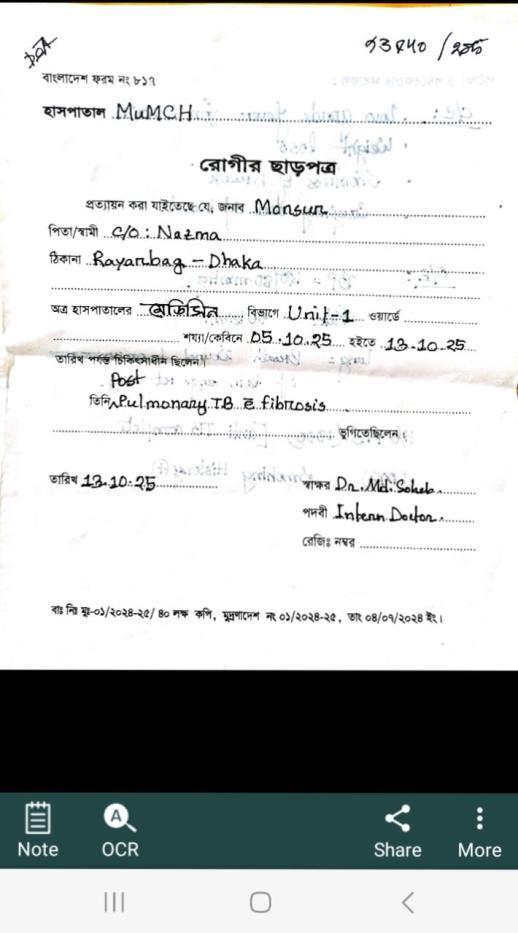 বাংলাদেশ ফরম নং ৮১৭
হাসপাতাল MuMCH
রোগীর ছাড়পত্র
প্রত্যায়ন করা যাইতেছে যে, জনাব Monsur
পিতা/স্বামী C/O: Nazma
ঠিকানা Rayarbag - Dhaka
অত্র হাসপাতালের মেডিসিন বিভাগে Unit-1 ওয়ার্ডে
শয্যা/কেবিনে 05.10.25 হইতে 13.10.25
তারিখ পর্যন্ত চিকিৎসাধীন ছিলেন।
Post
তিনি Pulmonary TB c̄ fibrosis
ভুগিতেছিলেন।
তারিখ 13.10.25
স্বাক্ষর Dr. Md. Soheb
পদবী Intern Doctor
রেজিঃ নম্বর
বাঃ নিঃ মুঃ-০১/২০২৪-২৫/ ৪০ লক্ষ কপি, মুদ্রণাদেশ নং ০১/২০২৪-২৫, তাং ০৪/০৭/২০২৪ ইং।
Note OCR Share More